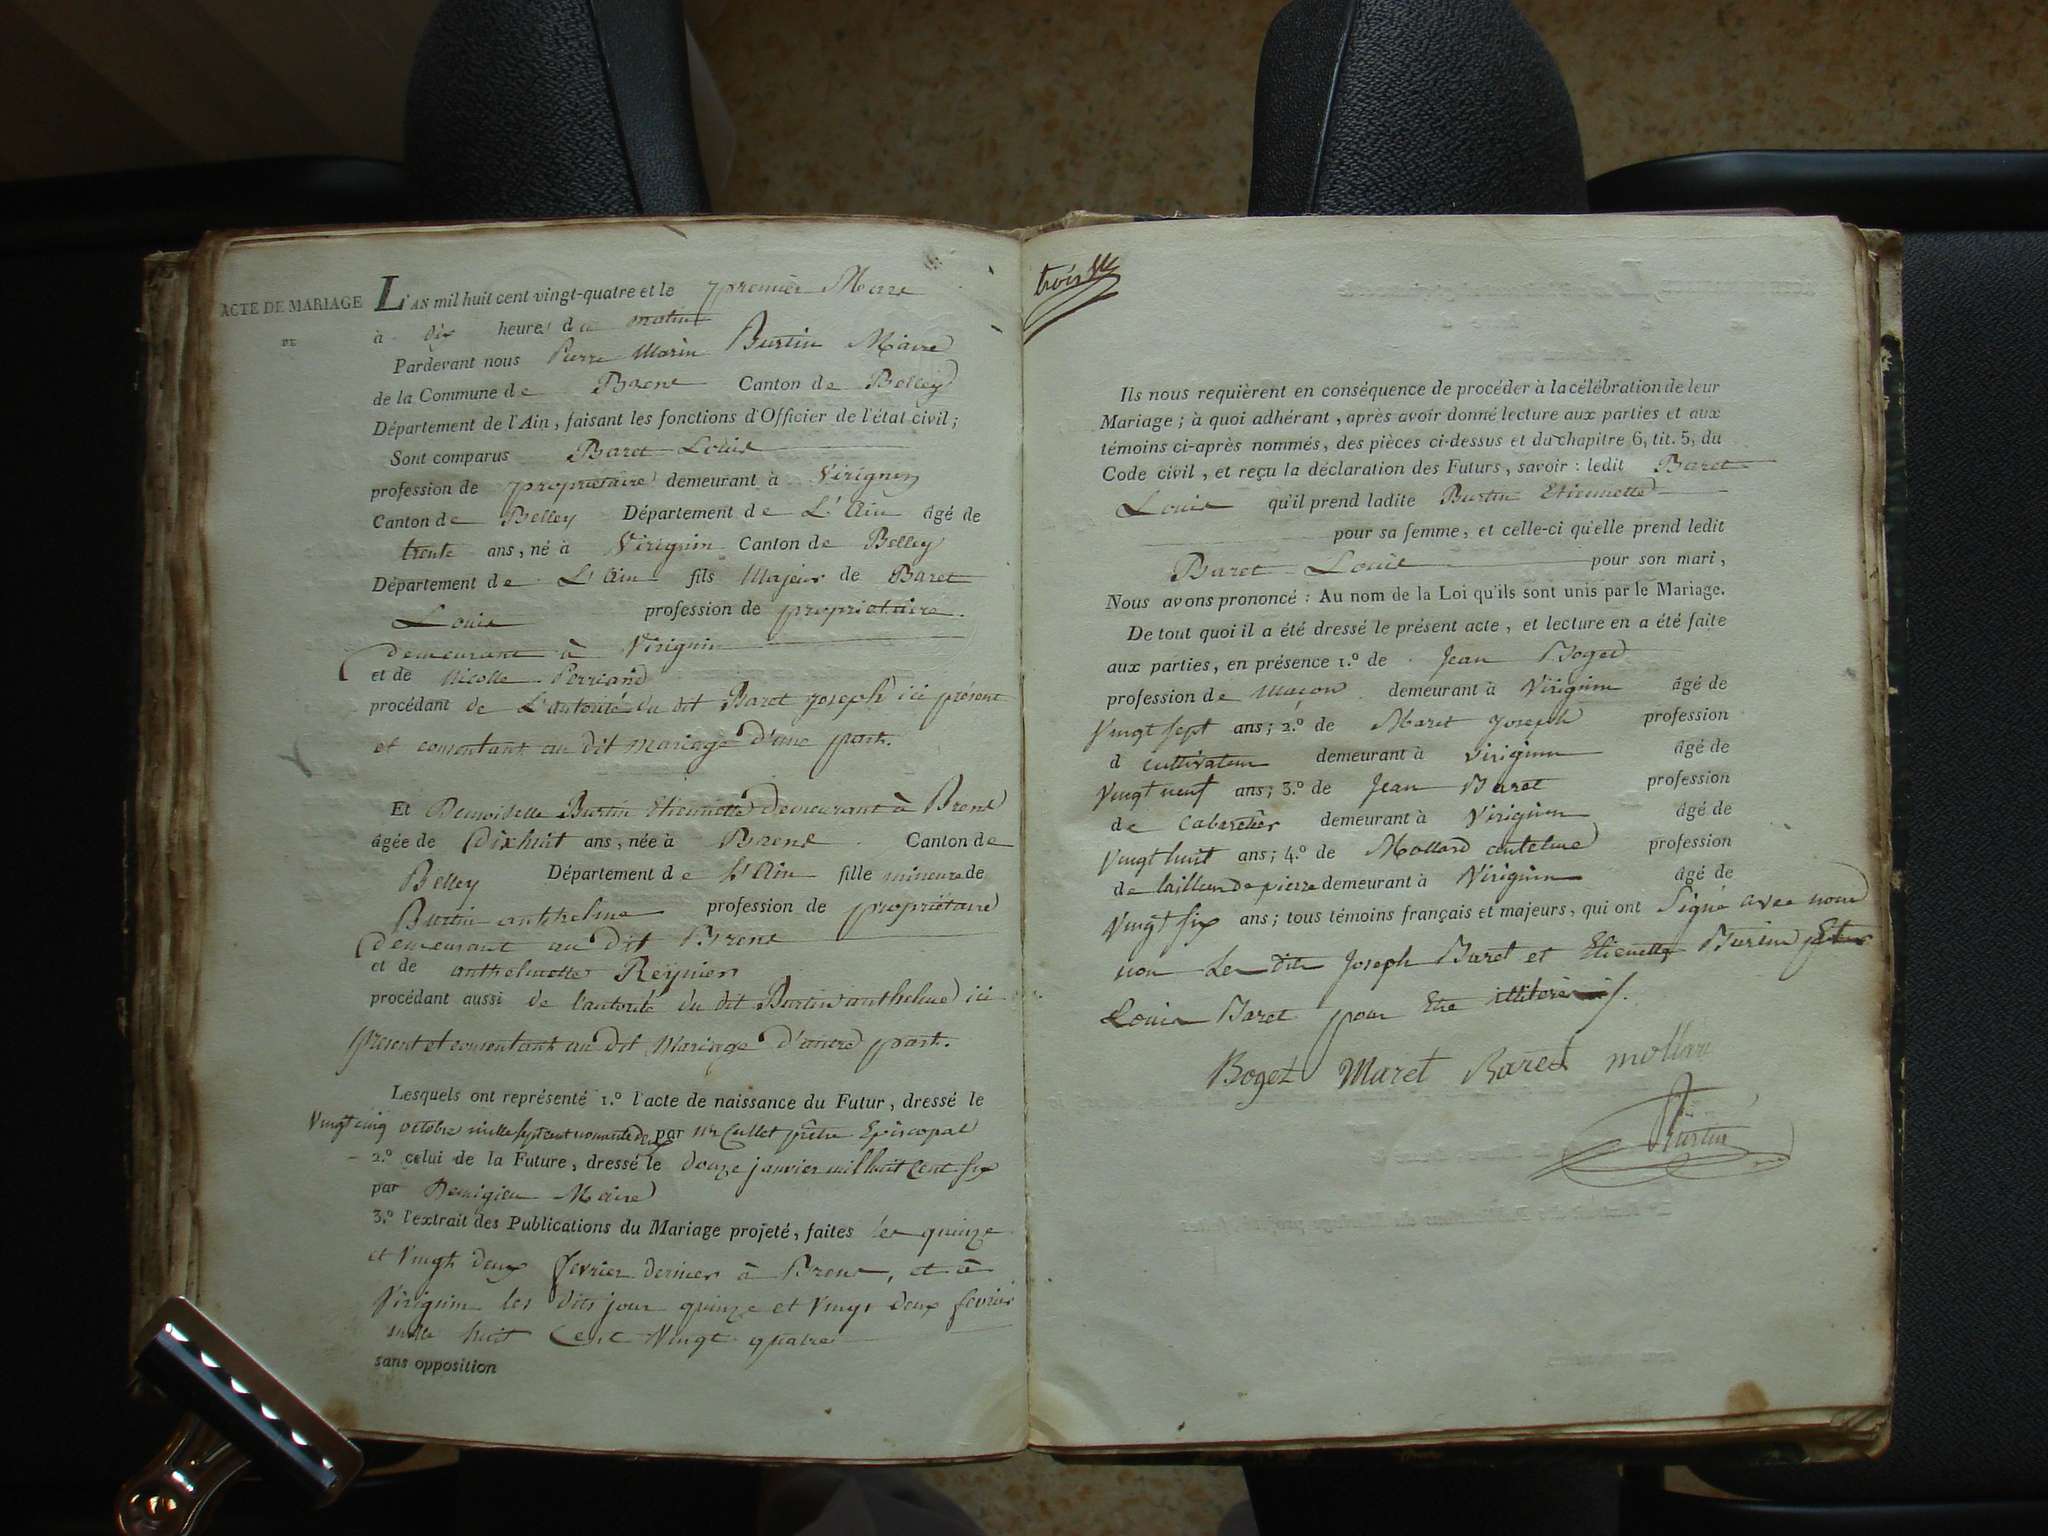 ACTE DE MARIAGE
DE
L'AN mil huit cent vingt-quatre et le premier Mars
à dix heures du matin
Pardevant nous Pierre Marin Burtin Maire
de la Commune de Brens Canton de Belley
Département de l'Ain, faisant les fonctions d'Officier de l'état civil;
Sont comparus Baret Louis
profession de propriétaire demeurant à Virignin
Canton de Belley Département de L'Ain âgé de
trente ans, né à Virignin Canton de Belley
Département de L'Ain fils Majeur de Baret
Louis profession de propriétaire.
demeurant à Virignin
et de Nicolle Perriand
procédant de L'autorité du dit Baret joseph ici présent
et consentant au dit mariage d'une part.
Et Demoiselle Burtin Etiennette demeurant à Brens
âgée de Dixhuit ans, née à Brens Canton de
Belley Département de L'Ain fille mineure de
Burtin anthelme profession de propriétaire
demeurant au dit Brens
et de anthelmette Reynier
procédant aussi de l'autorité du dit Burtin anthelme ici
présent et consentant au dit Mariage d'autre part.
Lesquels ont représenté 1.º l'acte de naissance du Futur, dressé le
Vingt cinq octobre mille sept cent nonante deux par Mr Cullet prêtre Episcopal
2.º celui de la Future, dressé le douze janvier mil huit cent six
par Demigieu Maire
3.º l'extrait des Publications du Mariage projeté, faites les quinze
et Vingt deux fevrier dernier à Brens, et à
Virignin les dits jour quinze et Vingt deux fevrier
mille huit Cent Vingt quatre
sans opposition
trois
Ils nous requièrent en conséquence de procéder à la célébration de leur
Mariage; à quoi adhérant, après avoir donné lecture aux parties et aux
témoins ci-après nommés, des pièces ci-dessus et du chapitre 6, tit. 5, du
Code civil, et reçu la déclaration des Futurs, savoir: ledit Baret
Louis qu'il prend ladite Burtin Etiennette
pour sa femme, et celle-ci qu'elle prend ledit
Baret Louis pour son mari,
Nous avons prononcé: Au nom de la Loi qu'ils sont unis par le Mariage.
De tout quoi il a été dressé le présent acte, et lecture en a été faite
aux parties, en présence 1.º de Jean Boget
profession de Maçon demeurant à Virignin âgé de
Vingt sept ans; 2.º de Maret joseph profession
d cultivateur demeurant à Virignin âgé de
Vingt neuf ans; 3.º de Jean Baret profession
de Cabaretier demeurant à Virignin âgé de
Vingt huit ans; 4.º de Mollard antelme profession
de tailleur de pierre demeurant à Virignin âgé de
Vingt six ans; tous témoins français et majeurs, qui ont Signé avec nous
non Les dits Joseph Baret et Etiennette Burtin
Louis Baret pour Etre
Boget Maret Baret mollard
Burtin